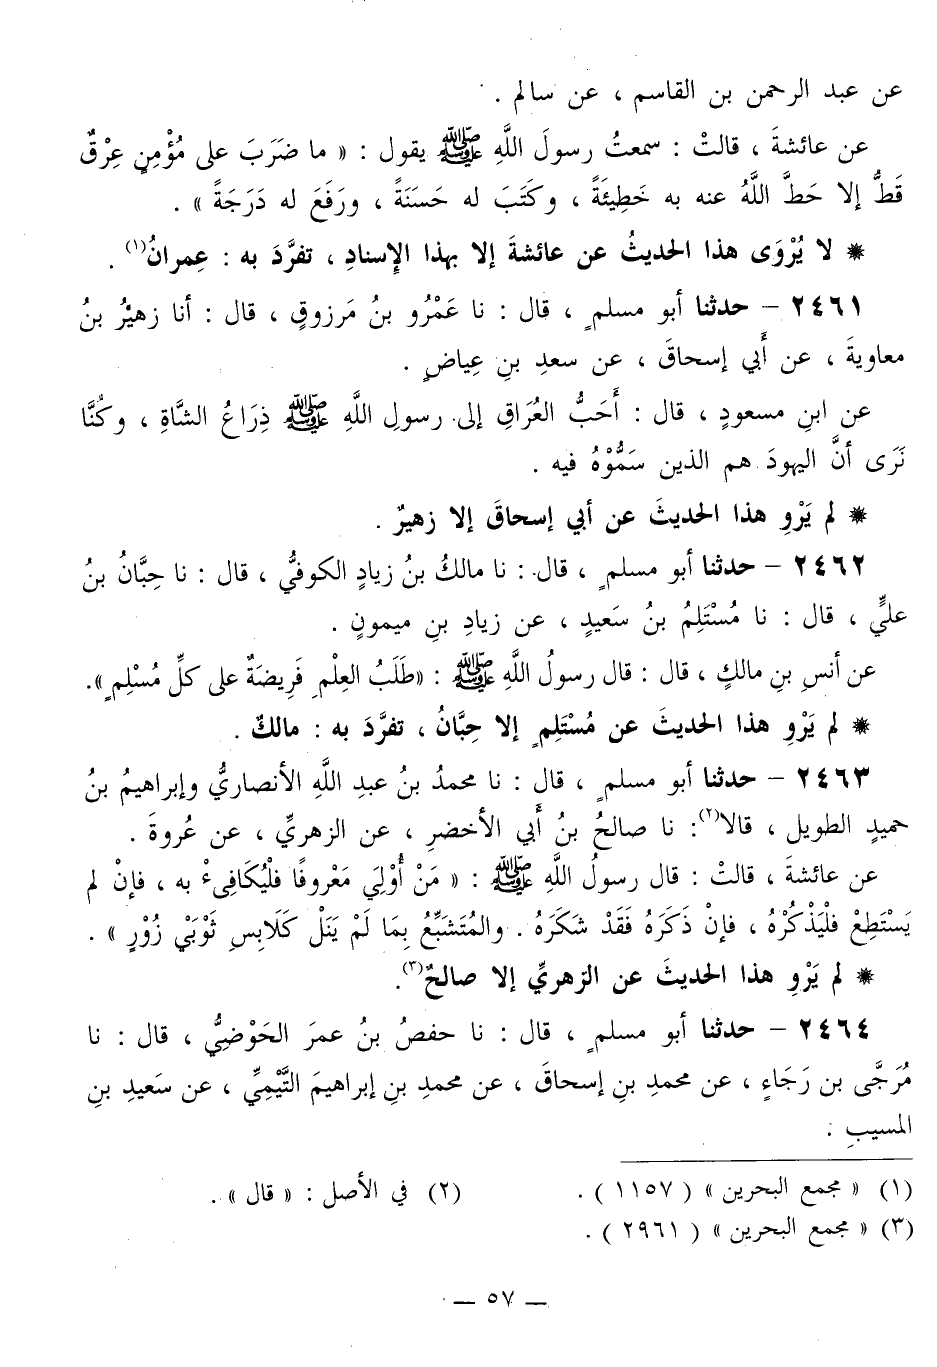 عن عبد الرحمن بن القاسم ، عن سالم .
عن عائشةَ ، قالتْ : سمعتُ رسولَ اللَّهِ ﷺ يقول : « ما ضَرَبَ على مُؤْمِنٍ عِرْقٌ
قَطُّ إلا حَطَّ اللَّهُ عنه به خَطِيئَةً ، وكَتَبَ له حَسَنَةً ، ورَفَعَ له دَرَجَةً » .
* لا يُرْوَى هذا الحديثُ عن عائشةَ إلا بهذا الإسنادِ ، تفرَّدَ به : عِمرانُ(١) .
٢٤٦١ – حدثنا أبو مسلمٍ ، قال : نا عَمْرُو بنُ مَرزوقٍ ، قال : أنا زهيْرُ بنُ
معاويةَ ، عن أَبي إسحاقَ ، عن سعدِ بنِ عِياضٍ .
عن ابنِ مسعودٍ ، قال : أَحَبُّ العُرَاقِ إلى رسولِ اللَّهِ ﷺ ذِرَاعُ الشَّاةِ ، وكُنَّا
نَرَى أنَّ اليهودَ هم الذين سَمُّوْهُ فيه .
* لم يَرْوِ هذا الحديثَ عن أبي إسحاقَ إلا زهيرٌ .
٢٤٦٢ – حدثنا أبو مسلمٍ ، قال : نا مالكُ بنُ زيادٍ الكوفيُّ ، قال : نا حِبَّانُ بنُ
عليٍّ ، قال : نا مُسْتَلِمُ بنُ سَعيدٍ ، عن زيادِ بنِ ميمونٍ .
عن أنسِ بنِ مالكٍ ، قال : قال رسولُ اللَّهِ ﷺ : «طَلَبُ العِلْمِ فَرِيضَةٌ على كلِّ مُسْلِمٍ».
* لم يَرْوِ هذا الحديثَ عن مُسْتَلِمٍ إلا حِبَّانُ ، تفرَّدَ به : مالكٌ .
٢٤٦٣ – حدثنا أبو مسلمٍ ، قال : نا محمدُ بنُ عبدِ اللَّهِ الأنصاريُّ وإبراهيمُ بنُ
حميدٍ الطويل ، قالا(٢): نا صالحُ بنُ أَبي الأخضرِ ، عن الزهريِّ ، عن عُروةَ .
عن عائشةَ ، قالتْ : قال رسولُ اللَّهِ ﷺ : « مَنْ أُوْلِيَ مَعْروفًا فلْيُكَافِىءْ به ، فإنْ لم
يَسْتَطِعْ فلْيَذْكُرْهُ ، فإنْ ذَكَرَهُ فَقَدْ شَكَرَهُ . والمُتَشَبِّعُ بِمَا لَمْ يَنَلْ كَلَابِسِ ثَوْبَيْ زُوْرٍ » .
* لم يَرْوِ هذا الحديثَ عن الزهريِّ إلا صالحٌ(٣).
٢٤٦٤ – حدثنا أبو مسلمٍ ، قال : نا حفصُ بنُ عمرَ الحَوْضِيُّ ، قال : نا
مُرَجَّى بن رَجَاءٍ ، عن محمدِ بنِ إسحاقَ ، عن محمدِ بنِ إبراهيمَ التَّيْمِيِّ ، عن سَعيدِ بنِ
المسيبِ .
(١) « مجمع البحرين » ( ١١٥٧ ) . (٢) في الأصل : « قال » .
(٣) « مجمع البحرين » ( ٢٩٦١ ) .
— ٥٧ —